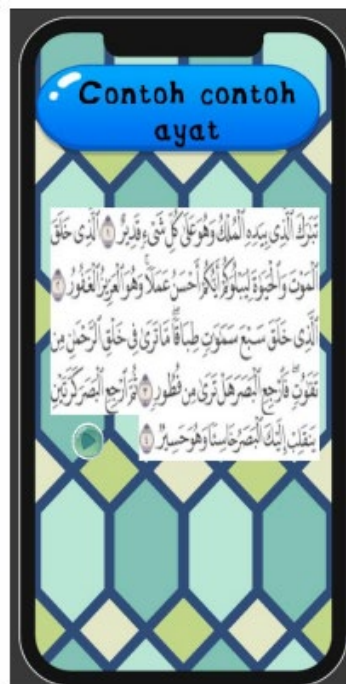 Contoh contoh
ayat
تَبَٰرَكَ ٱلَّذِى بِيَدِهِ ٱلْمُلْكُ وَهُوَ عَلَىٰ كُلِّ شَىْءٍ قَدِيرٌ ١ ٱلَّذِى خَلَقَ
ٱلْمَوْتَ وَٱلْحَيَوٰةَ لِيَبْلُوَكُمْ أَيُّكُمْ أَحْسَنُ عَمَلًا ۚ وَهُوَ ٱلْعَزِيزُ ٱلْغَفُورُ ٢
ٱلَّذِى خَلَقَ سَبْعَ سَمَٰوَٰتٍ طِبَاقًا ۖ مَّا تَرَىٰ فِى خَلْقِ ٱلرَّحْمَٰنِ مِن
تَفَٰوُتٍ ۖ فَٱرْجِعِ ٱلْبَصَرَ هَلْ تَرَىٰ مِن فُطُورٍ ٣ ثُمَّ ٱرْجِعِ ٱلْبَصَرَ كَرَّتَيْنِ
يَنقَلِبْ إِلَيْكَ ٱلْبَصَرُ خَاسِئًا وَهُوَ حَسِيرٌ ٤